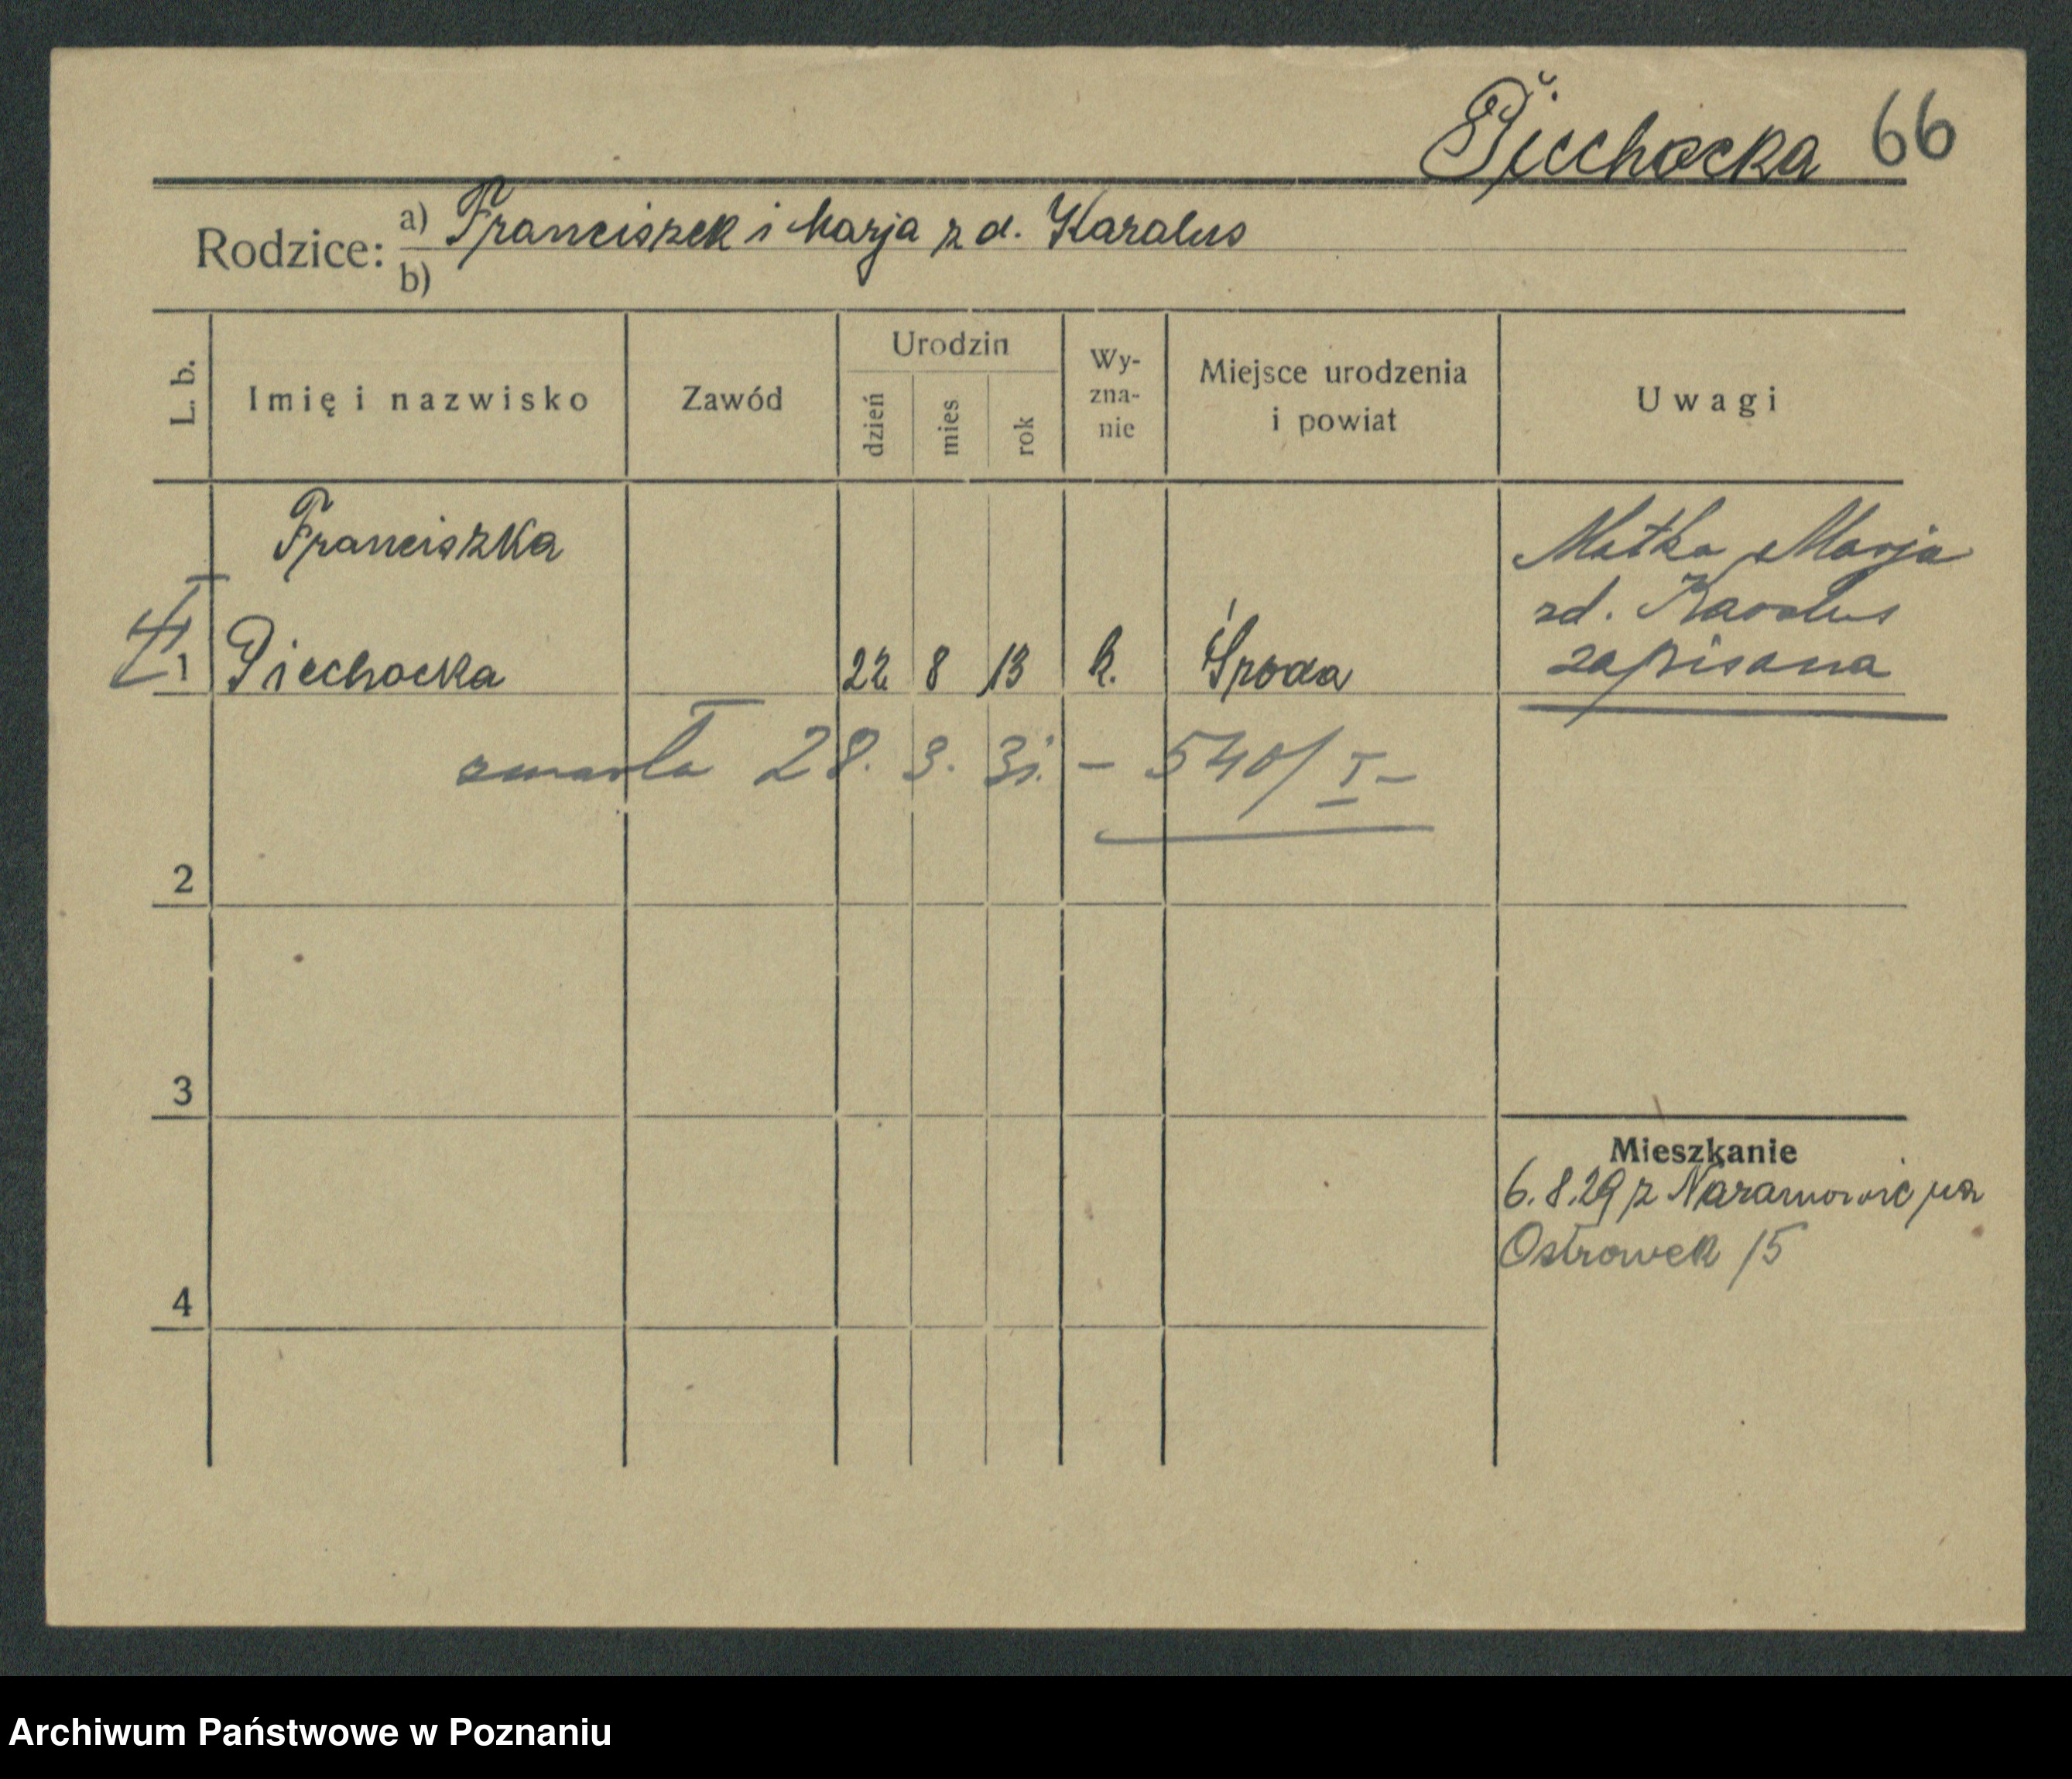 Piechocka 66
Rodzice: a) Franciszek i Marja z d. Karalus
b)
L. b.
Imię i nazwisko
Zawód
Urodzin
dzień
mies
rok
Wy-
zna-
nie
Miejsce urodzenia
i powiat
Uwagi
Franciszka
1 Piechocka 22 8 13 k. Środa
Matka Marja
zd. Karolus
zapisana
zmarła 28. 3. 31. – 540/I –
2
3
4
Mieszkanie
6.8.29 z Naramowic na
Ostrowek 15
Archiwum Państwowe w Poznaniu